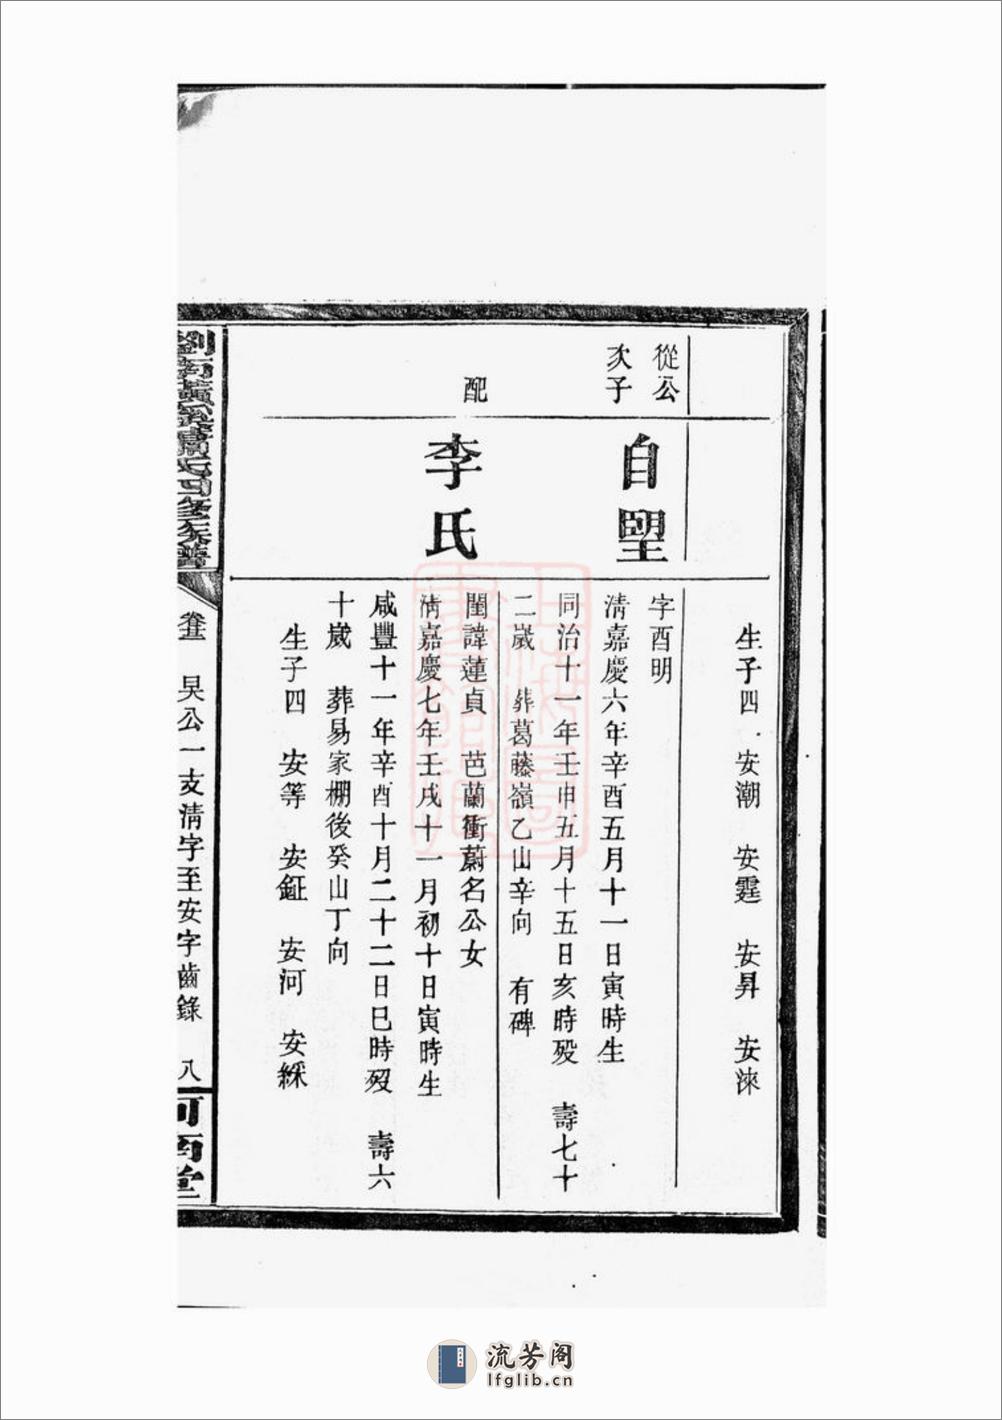 生子四 安潮 安霆 安昇 安淶
從公
次子
自朢
字酉明
清嘉慶六年辛酉五月十一日寅時生
同治十一年壬申五月十五日亥時歿 壽七十
二嵗 葬葛藤嶺乙山辛向 有碑
配
李氏
閨諱蓮貞 芭蘭衝蔚名公女
清嘉慶七年壬戌十一月初十日寅時生
咸豐十一年辛酉十月二十二日巳時歿 壽六
十嵗 葬易家棚後癸山丁向
生子四 安等 安鉦 安河 安綵
氏四修族譜
卷五 昊公一支清字至安字齒錄 八
河南堂
流芳阁
lfglib.cn